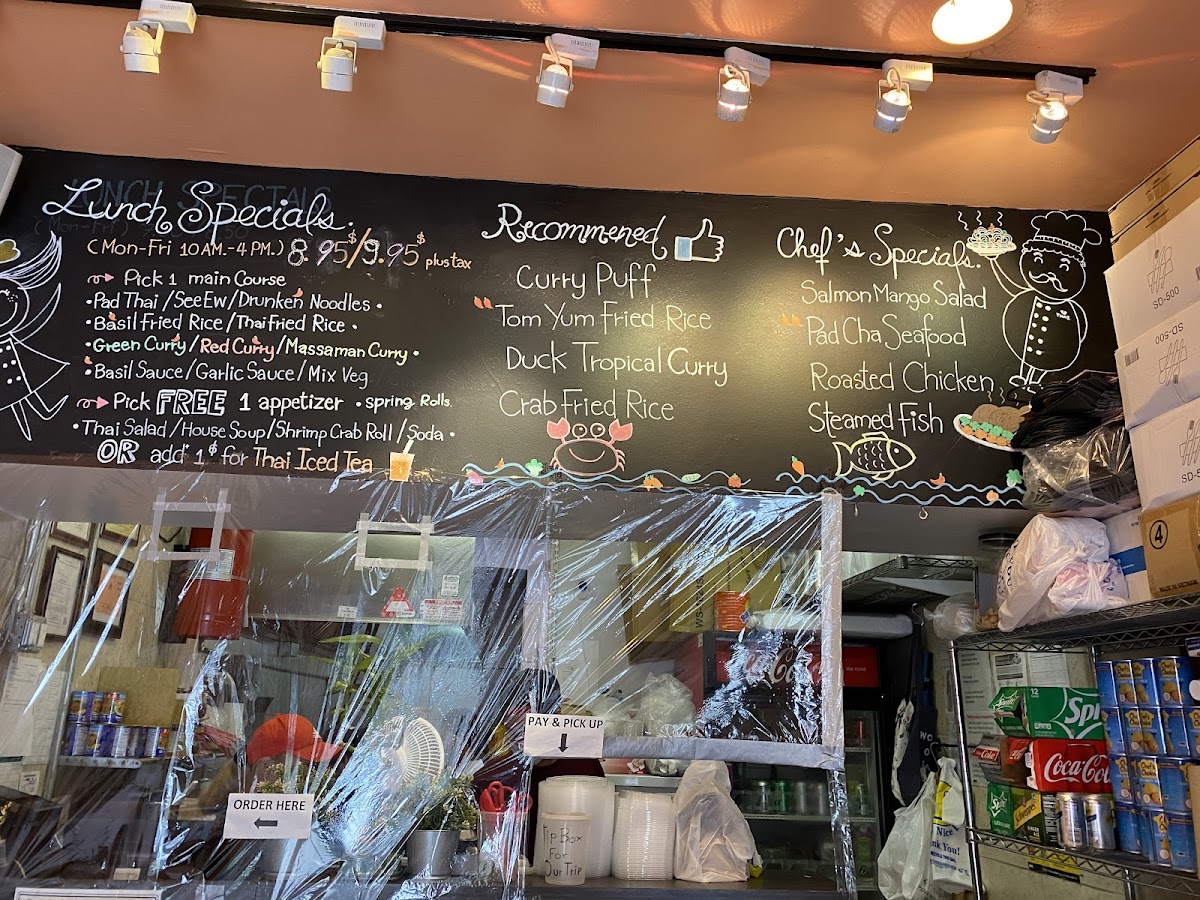 Lunch Specials.
(Mon-Fri 10 AM.-4 PM.) 8.95$/9.95$ plus tax
Pick 1 main Course
•Pad Thai/See Ew/Drunken Noodles•
•Basil Fried Rice/Thai Fried Rice•
•Green Curry/Red Curry/Massaman Curry•
•Basil Sauce/Garlic Sauce/Mix Veg
Pick FREE 1 appetizer •spring Rolls.
•Thai Salad/House Soup/Shrimp Crab Roll/Soda•
OR add 1$ for Thai Iced Tea
Recommened
Curry Puff
Tom Yum Fried Rice
Duck Tropical Curry
Crab Fried Rice
Chef's Specials.
Salmon Mango Salad
Pad Cha Seafood
Roasted Chicken
Steamed Fish
LUNCH SPECIALS
SD-500
SD-500
4
PAY & PICK UP
ORDER HERE
Tip Box
For
Our Trip
Coca-Cola
12
Coca-Cola
Nice
Thank You!